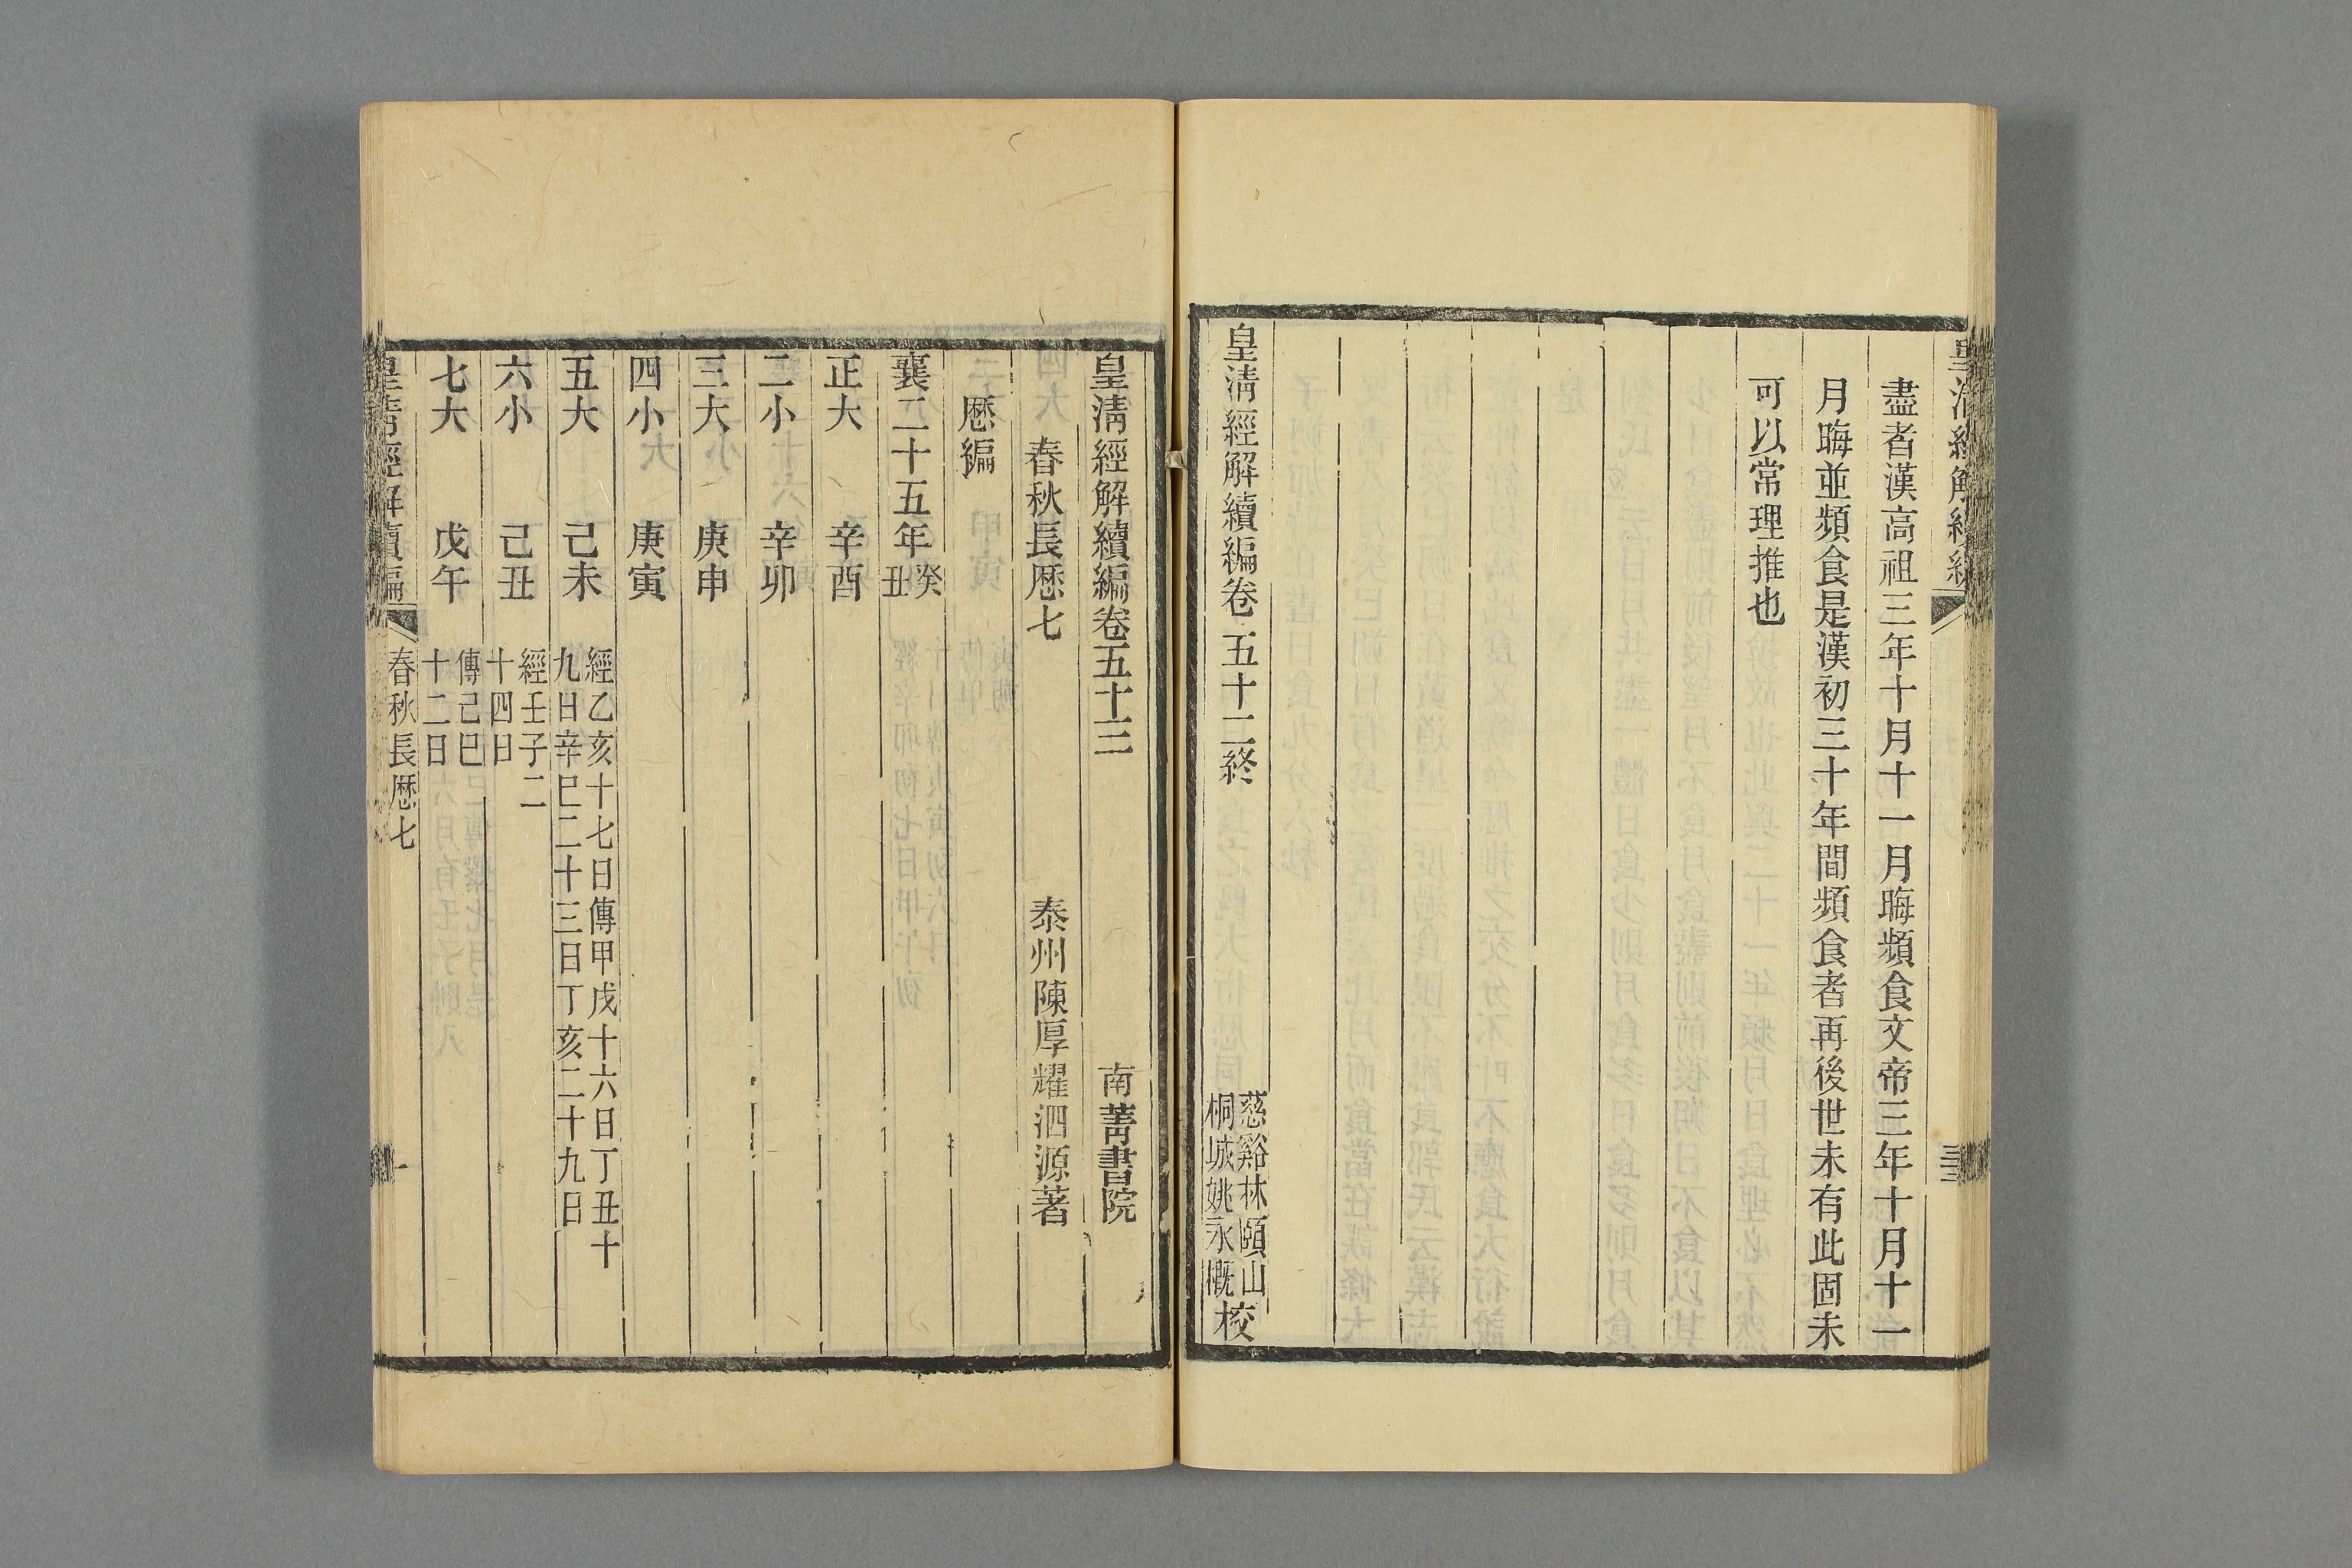 盡者漢高祖三年十月十一月晦頻食文帝三年十月十一
月晦並頻食是漢初三十年間頻食者再後世未有此固未
可以常理推也
皇清經解續編卷五十二終
慈谿林頤山
桐城姚永概
校
皇清經解續編卷五十三
南菁書院
春秋長厯七
泰州陳厚耀泗源著
厯編
襄二十五年癸丑
正大 辛酉
二小 辛卯
三大 庚申
四小 庚寅
五大 己未 經乙亥十七日傳甲戌十六日丁丑十
九日辛巳二十三日丁亥二十九日
六小 己丑 經壬子二
十四日
七大 戊午 傳己巳
十二日
皇清經解續編 春秋長厯七 一